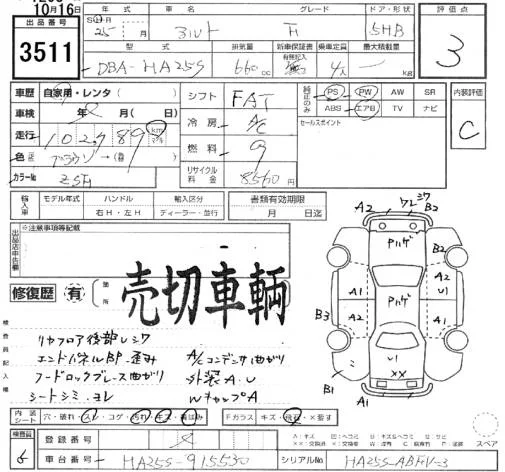 10月16日
出品番号
3511
年式 車名 グレード ドア・形状
SH 25年 月 アルト F 5HB
型式 排気量 新車保証書 乗車定員 最大積載量
有無記入
DBA-HA25S 660cc 4人 kg
評価点
3
車歴 自家用・レンタ( )
車検 年 月( 日)
走行 102789 km
色
カラーNo. ZSH
シフト FAT
冷房 A/C
燃料
リサイクル料金 8560円
純正のみ PS PW AW SR
ABS エアB TV ナビ
セールスポイント
内装評価
C
輸入車 モデル年式 ハンドル 輸入区分 書類有効期限
右H・左H ディーラー・並行 月 日迄
出品店申告欄 ※注意事項等記載
修復歴 有 箇所
売切車輌
検査員記入欄
リヤフロア後部しシワ
エンドパネルBP歪み A/Cコンデンサ曲がり
フードロックブレース曲がり 外装A.U
シートシミ.ヨレ WキャップA
A2 クレシワ B2
Pハゲ
B2
A2
A1 Pハゲ U1
B3 A1 A2
U1
ミ
B1 XX
A1
内装シート 穴・破れ・スレ・コゲ・汚れ・キズ・黄ばみ Fガラス キズ・飛石・X要す
スペア
検査員 6
登録番号
車台番号 HA25S-915530 シリアルNo. HA25S-ABFV-3